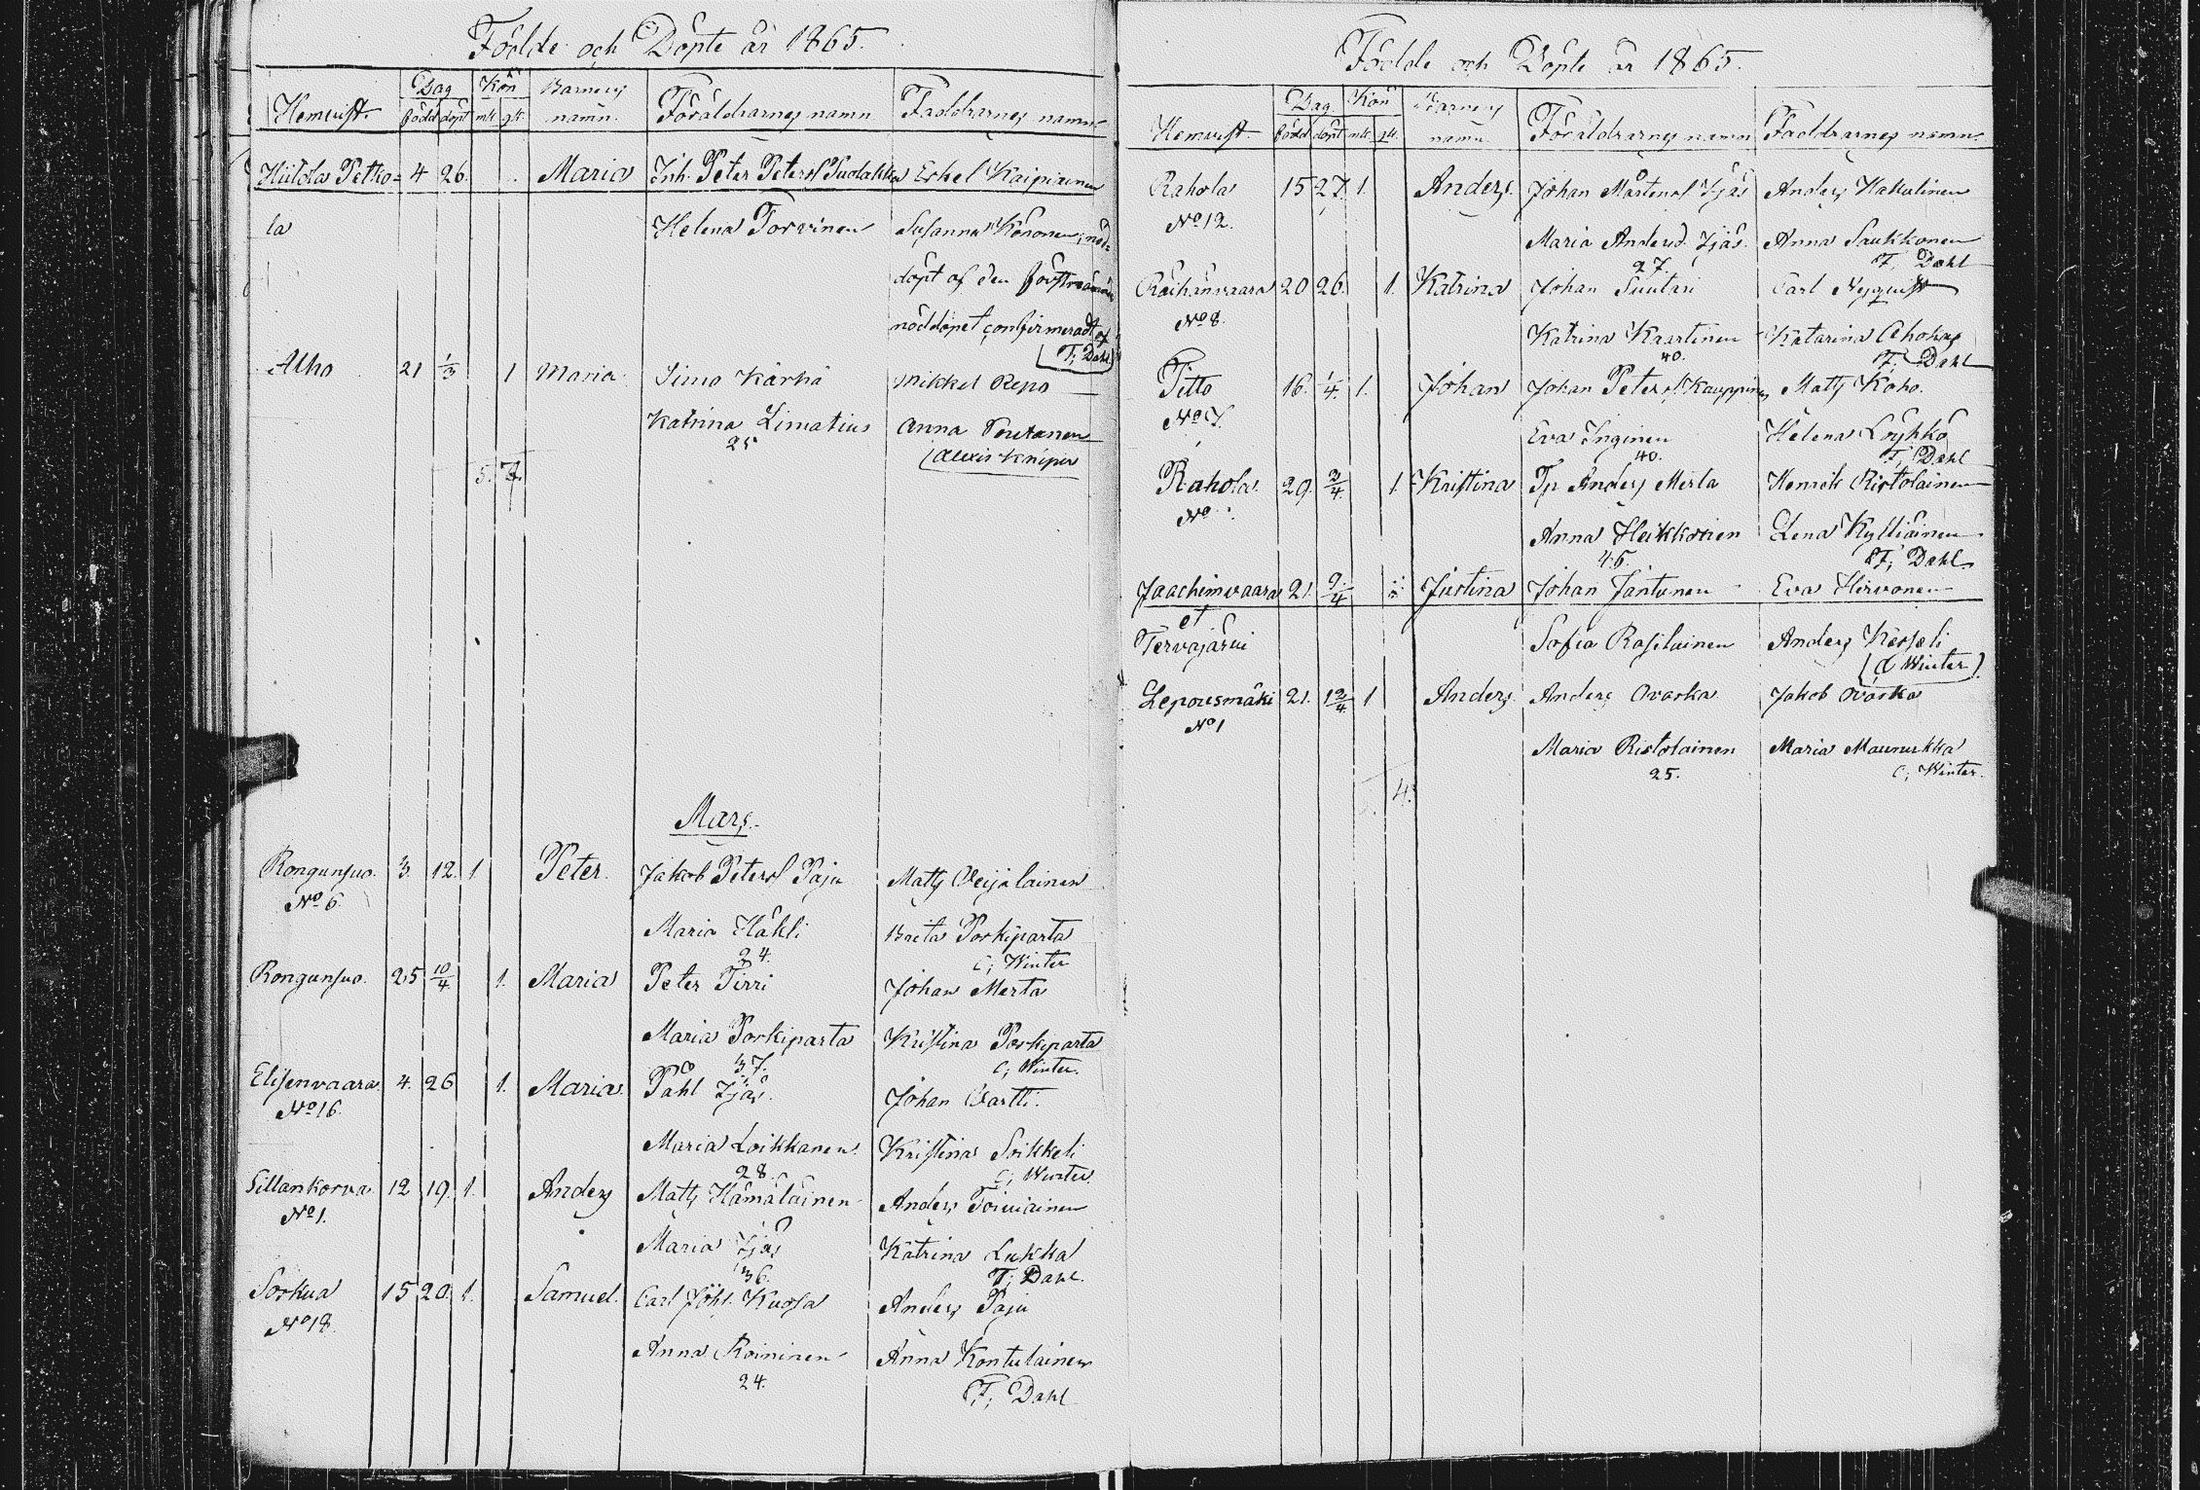 Födde och Döpte år 1865.
Hemvist. Dag född döpt Kön mk. qk. Barnens namn. Föräldrarnes namn Faddrarnes namn
Hiitola Petko= 4 26. Maria Inh. Peter Peters Puolakka Erkel Kaipiainen
la Helena Torvinen Susanna Kosonen, nöd=
döpt af den förstnämnda
nöddopet confirmeradt af
T; Dahl
Alho 21 1/3 1 Maria Simo Kärhä Mikkel Repo
Katrina Limatius Anna Poutanen
25 Alexis Kniper
5. 7.
Mars.
Rongunsuo. 3. 12. 1. Peter. Jakob Peters Paju Matts Veijalainen
No 6. Maria Häkli Brita Porkiparta
24. C; Winter
Rongunsuo. 25 10/4 1. Maria Peter Pirri Johan Merta
Maria Porkiparta Kristina Porkiparta
37. C; Winter.
Elisenvaara 4. 26 1. Maria. Påhl Äjäs. Johan Vartti.
No 16. Maria Loikkanen. Kristina Soikkeli
28. C; Winter.
Sillankorva 12 19. 1. Anders Matts Hämäläinen Anders Toiviainen
No 1. Maria Äjäs Katrina Lukka
36. T; Dahl.
Sorkua 15 20. 1. Samuel. Carl Joh. Kuosa Anders Paju
No 18. Anna Roininen Anna Kontulainen
24. T; Dahl
Födde och Döpte år 1865.
Hemvist Dag. född döpt Kön mk. qk. Barnens namn Föräldrarnes namn Faddrarnes namn
Rahola 15 27. 1. Anders. Johan Mårtens Äjäs Anders Hakulinen
No 12. Maria Andersd. Äjäs. Anna Saukkonen
27. T; Dahl
Räihänvaara 20 26. 1. Katrina Johan Suutari Carl Nyquist
No 8. Katrina Kaartinen Katarina Ahokas
40. T; Dahl
Titto 16. 1/4. 1. Johan Johan Peters Kauppinen Matts Koho.
Eva Inginen Helena Löyhkö
40. T; Dahl
Rahola. 29. 2/4. 1. Kristina Tp Anders Merta Henrik Ristolainen
No Anna Heikkonen Lena Kylliäinen
46. T; Dahl.
Jaachimvaara 21. 9/4 Justina Johan Jantunen Eva Hirvonen
et
Tervajärvi Sofia Rasilainen Anders Kesseli
(C Winter)
Lepousmäki 21. 12/4 1 Anders. Anders Ovaska Jakob Ovaska
No 1 Maria Ristolainen Maria Maunukka
25. C; Winter.
4.